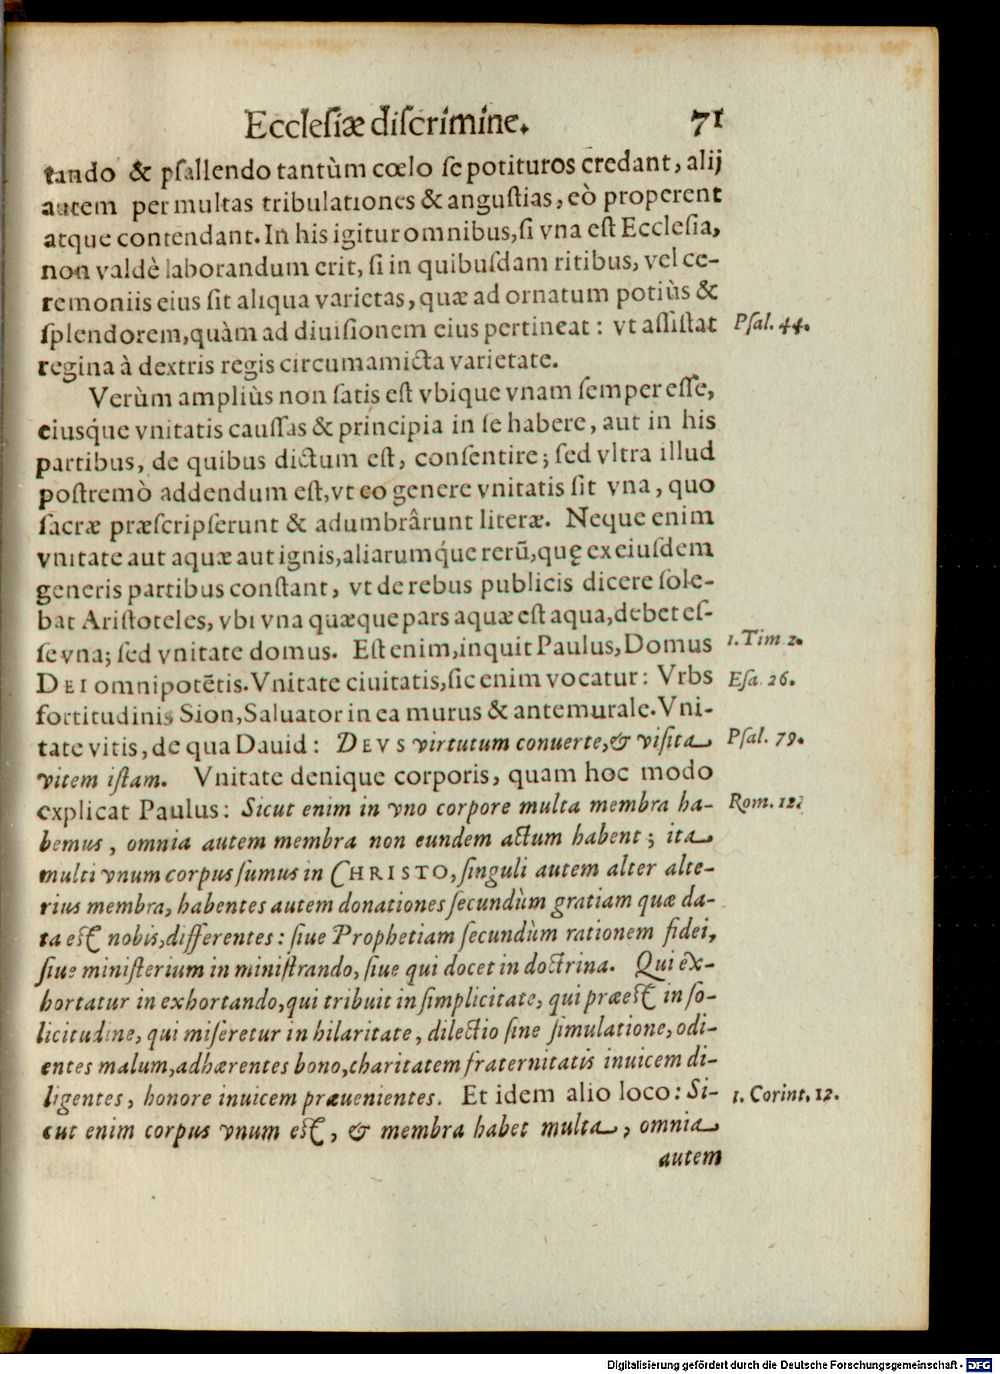 Ecclesiæ discrimine. 71
tando & psallendo tantùm cœlo se potituros credant, alij
autem per multas tribulationes & angustias, eò properent
atque contendant. In his igitur omnibus, si vna est Ecclesia,
non valdè laborandum erit, si in quibusdam ritibus, vel ce-
remoniis eius sit aliqua varietas, quæ ad ornatum potiùs &
splendorem, quàm ad diuisionem eius pertineat: vt assistat Psal. 44.
regina à dextris regis circumamicta varietate.
Verùm ampliùs non satis est vbique vnam semper esse,
eiusq́ue vnitatis caussas & principia in se habere, aut in his
partibus, de quibus dictum est, consentire; sed vltra illud
postremò addendum est, vt eo genere vnitatis sit vna, quo
sacræ præscripserunt & adumbrârunt literæ. Neque enim
vnitate aut aquæ aut ignis, aliarumq́ue rerũ, quę ex eiusdem
generis partibus constant, vt de rebus publicis dicere sole-
bat Aristoteles, vbi vna quæque pars aquæ est aqua, debet es-
se vna; sed vnitate domus. Est enim, inquit Paulus, Domus 1. Tim 2.
DEI omnipotẽtis. Vnitate ciuitatis, sic enim vocatur: Vrbs Esa. 26.
fortitudinis Sion, Saluator in ea murus & antemurale. Vni-
tate vitis, de qua Dauid: DEVS virtutum conuerte, & visita Psal. 79.
vitem istam. Vnitate denique corporis, quam hoc modo
explicat Paulus: Sicut enim in vno corpore multa membra ha- Rom. 12.
bemus, omnia autem membra non eundem actum habent; ita
multi vnum corpus sumus in CHRISTO, singuli autem alter alte-
rius membra, habentes autem donationes secundùm gratiam quæ da-
ta est nobis, differentes: siue Prophetiam secundùm rationem fidei,
siue ministerium in ministrando, siue qui docet in doctrina. Qui ex-
hortatur in exhortando, qui tribuit in simplicitate, qui præest in so-
licitudine, qui miseretur in hilaritate, dilectio sine simulatione, odi-
entes malum, adhærentes bono, charitatem fraternitatis inuicem di-
ligentes, honore inuicem præuenientes. Et idem alio loco: Si- 1. Corint. 12.
cut enim corpus vnum est, & membra habet multa, omnia
autem
Digitalisierung gefördert durch die Deutsche Forschungsgemeinschaft - DFG